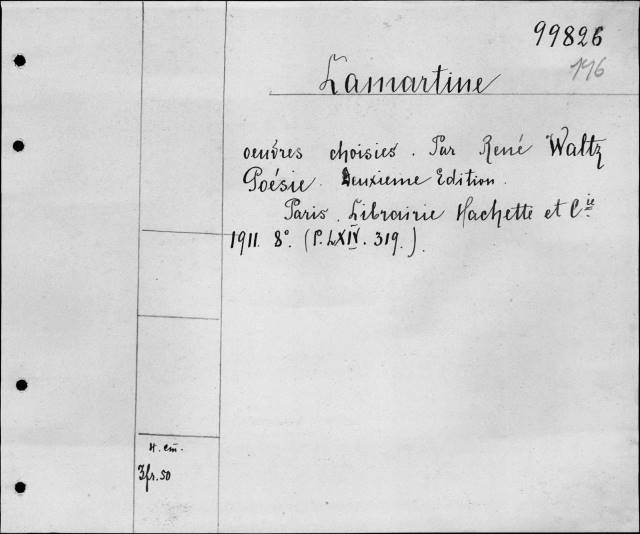 99826
116
Lamartine
oeuvres choisies. Par René Waltz
Poésie. Deuxieme Edition.
Paris. Librairie Hachette et Cie
1911. 8°. (P. LXIV. 319.)
3fr. 50